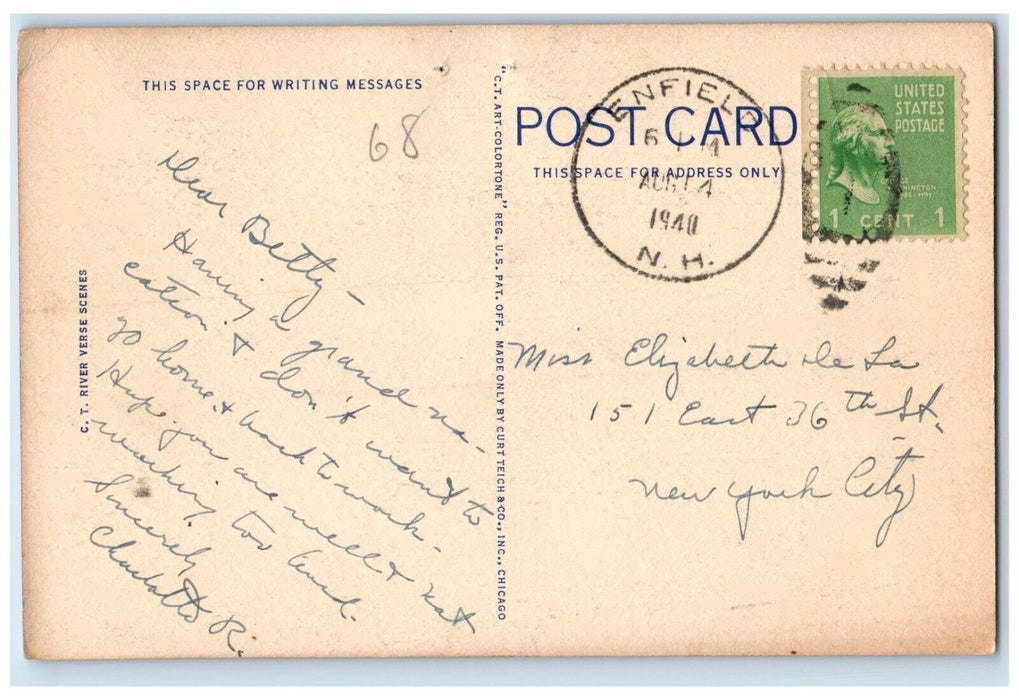 THIS SPACE FOR WRITING MESSAGES
68
Dear Betty –
Having a grand va-
cation & don't want to
go home & back to work –
Hope you are well & not
working too hard.
Sincerely
Charlotte R.
C. T. RIVER VERSE SCENES
"C.T. ART-COLORTONE" REG. U.S. PAT. OFF. MADE ONLY BY CURT TEICH & CO., INC., CHICAGO
POST CARD
THIS SPACE FOR ADDRESS ONLY
ENFIELD
AUG 14
1940
N. H.
UNITED
STATES
POSTAGE
1 CENT 1
Miss Elizabeth De La
151 East 36th St.
New York City